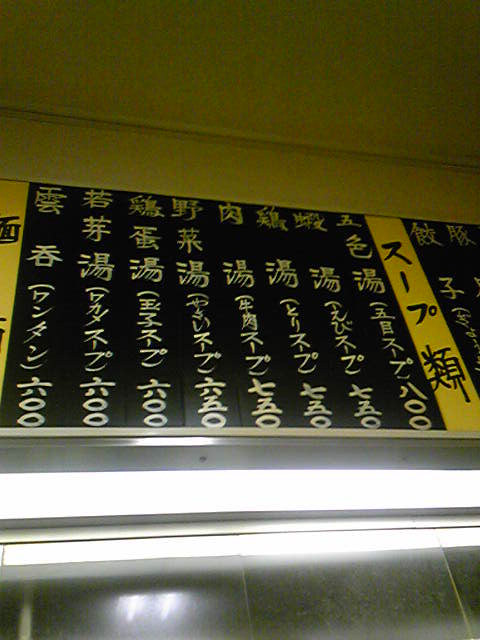 豚
餃子(ぎょう
スープ類
五色湯(五目スープ)八〇〇
蝦湯(えびスープ)七五〇
鶏湯(とりスープ)七五〇
肉湯(牛肉スープ)七五〇
野菜湯(やさいスープ)六五〇
鶏蛋湯(玉子スープ)六〇〇
若芽湯(ワカメスープ)六〇〇
雲呑(ワンタン)六〇〇